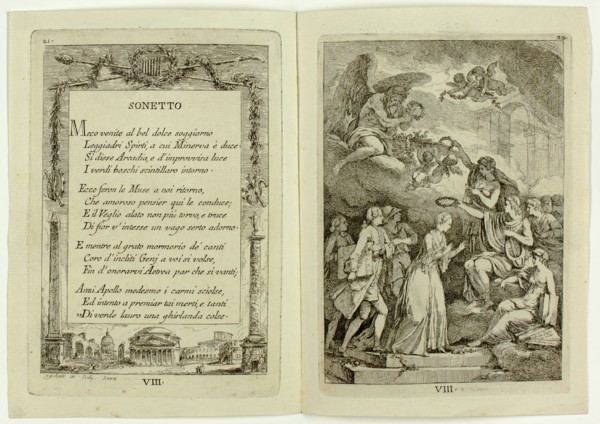 21.
SONETTO
Meco venite al bel dolce soggiorno
Leggiadri Spirti, a cui Minerva è duce
Si disse Arcadia, e d'improvvisa luce
I verdi boschi scintillaro intorno.
Ecco feron le Muse a noi ritorno,
Che amoroso pensier qui le conduce;
E il Veglio alato non più torvo, e truce
Di fior v'intesse un vago serto adorno.
E mentre al grato mormorio de' canti
Coro d'incliti Genj a voi si volse,
Fin d'onorarvi Astrea par che si vanti;
Anzi Apollo medesmo i carmi sciolse,
Ed intento a premiar tai merti, e tanti
"Di verde lauro una ghirlanda colse.
VIII.
VIII